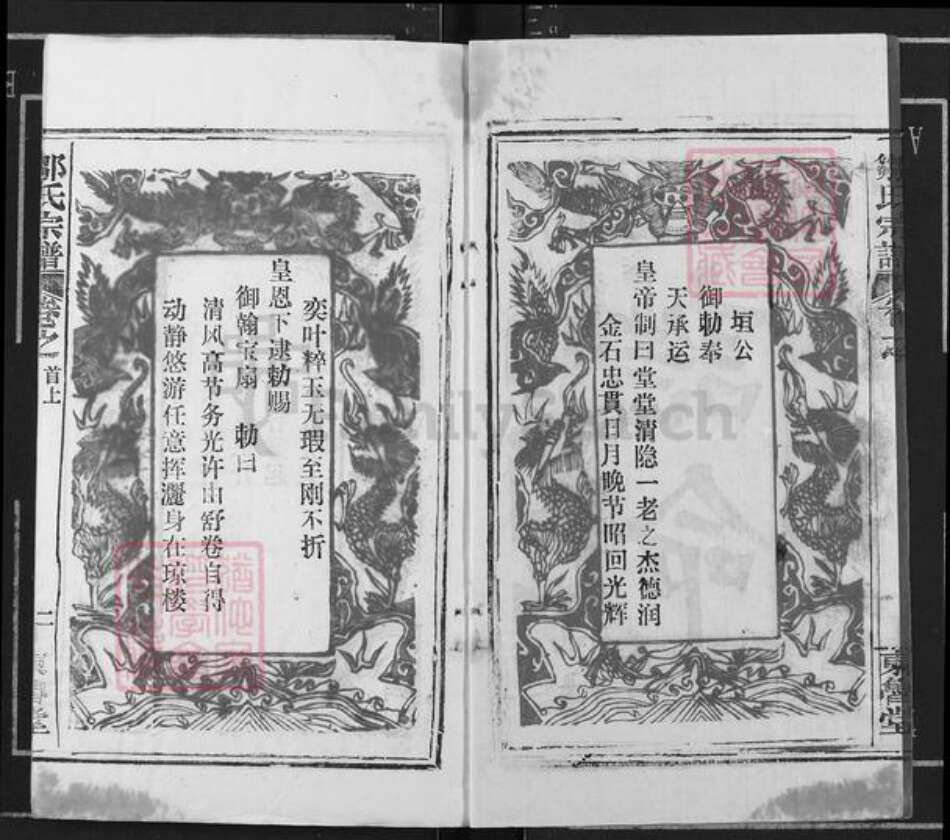 垣公
御勅奉
天承运
皇帝制曰堂堂清隐一老之杰德润
金石忠貫日月晚节昭回光辉
奕叶粹玉无瑕至刚不折
皇恩下逮勅赐
御翰宝扇 勅曰
清风高节务光许由舒卷自得
动静悠游任意挥灑身在琼楼
鄒氏宗譜
卷之
首上
二
堂